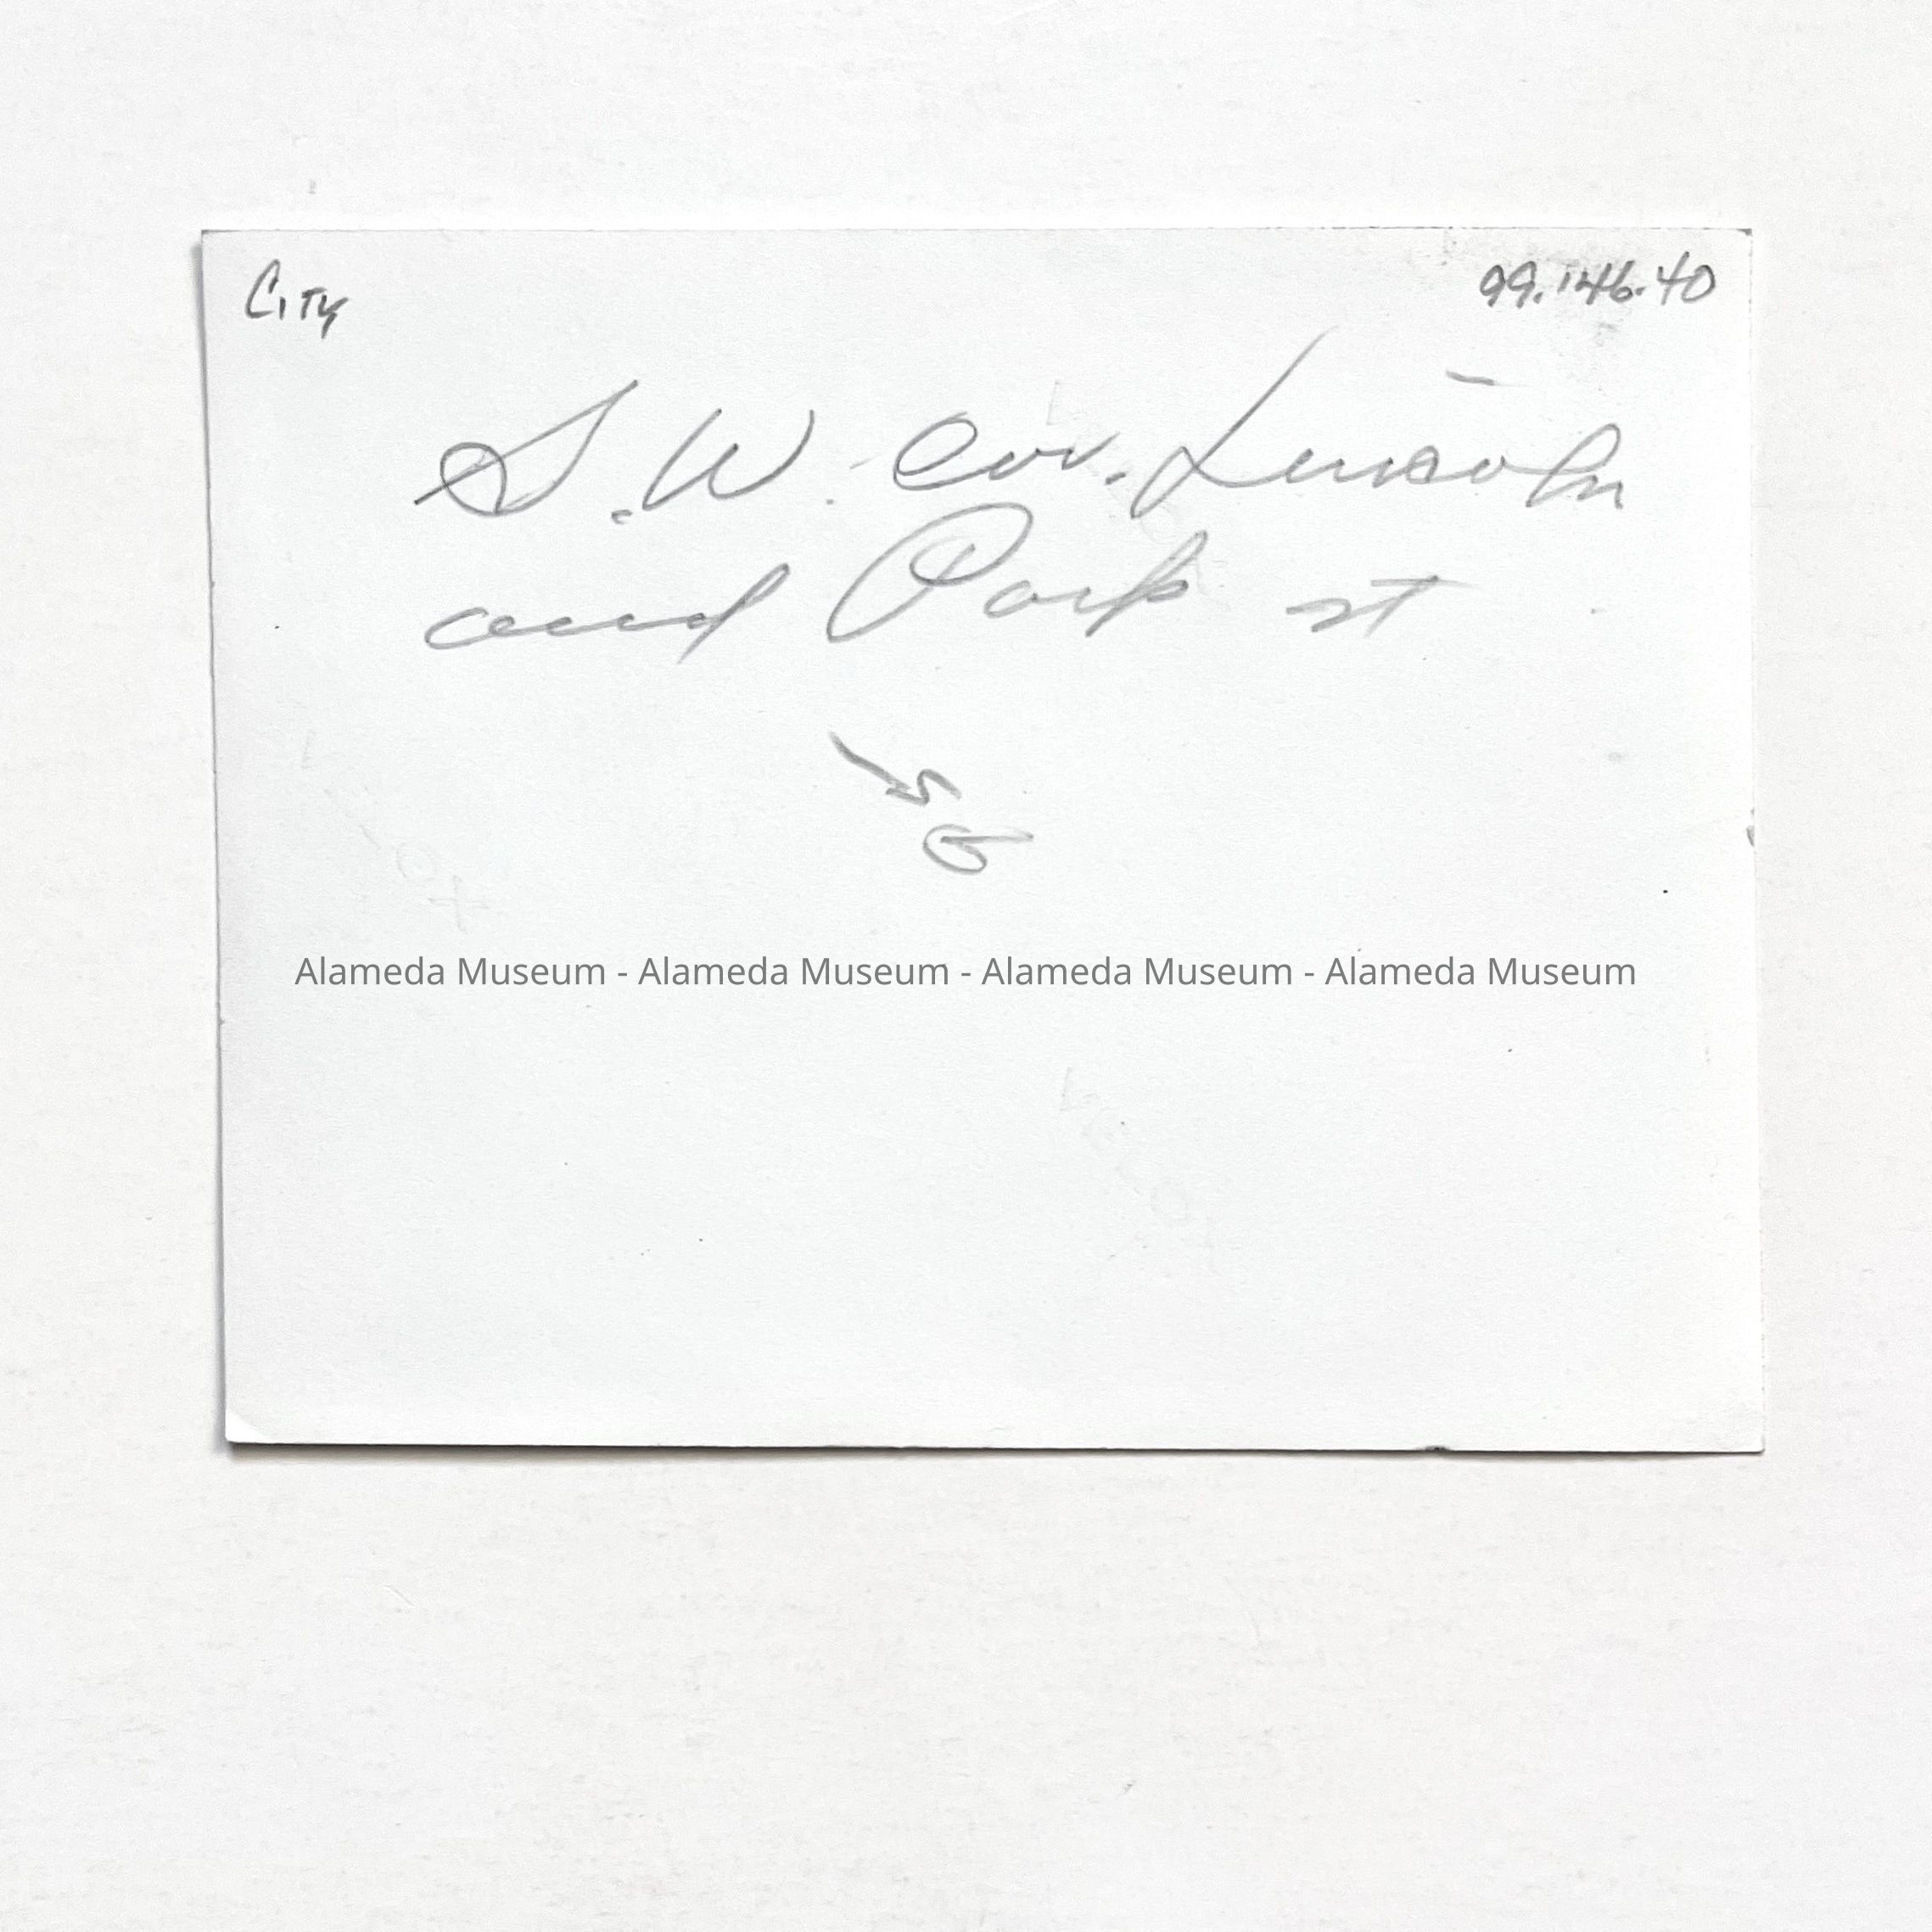 City 99.146.40
S.W. Cor. Lincoln
and Park st
Alameda Museum - Alameda Museum - Alameda Museum - Alameda Museum